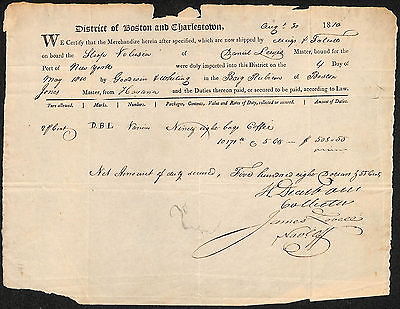 District of Boston and Charlestown, Augt 30 1810
WE Certify that the Merchandize herein after specified, which are now shipped by
on board the Sloop Master, bound for the
Port of New York were duly imported into this District on the 4 Day of
May 1810 by Goodwin & Whiting in the Brig of Boston
Jones Master, from Havanna and the Duties thereon paid, or secured to be paid, according to Law.
Tare allowed. Marks. Numbers. Packages, Contents, Value and Rates of Duty, collected or secured. Amount of Duties.
2 P Cent D.B.L Various Ninety eight bags Coffee
5
Net Amount of duty secured, Five hundred eight Dollars & 55 Cents
H Dearborn
Collector
James Lovell